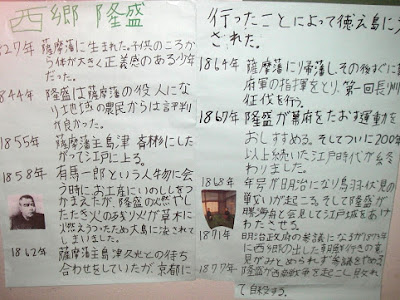 西郷 隆盛
1827年 薩摩藩に生まれた。子供のころか
ら体が大きく正義感のある少年
だった。
1844年 隆盛は薩摩藩の役人にな
り地域の農民からは評判
が良かった。
1855年 薩摩藩主島津 斉彬にした
がって江戸に上る。
1858年 有馬一郎という人物に会
う時にお土産にいのししをつ
かまえたが、隆盛の火燃やし
たたき火の残り火が草木に
燃えうつったため大島に流さ
てしまいました。
1862年 薩摩藩主島津久光との待ち
合わせをしていたが、京都に
行ったことによって徳之島に
された。
1864年 薩摩藩に帰藩しその後すぐに
府軍の指揮をとり、第一回長州
征伐を行う。
1867年 隆盛が幕府をたおす運動を
おしすすめる。そしてついに200年
以上続いた江戸時代が終
わりました。
1868年 年号が明治になり鳥羽伏見の
戦いが起こる。そして隆盛が
勝海舟と会見して江戸城をあけ
わたさせる。
1871年 明治政府の参議になるが1873年
に西郷の出した朝鮮行きの意
見がみとめられず参議をやめる
1877年 隆盛が西南戦争を起こし
て自殺する。